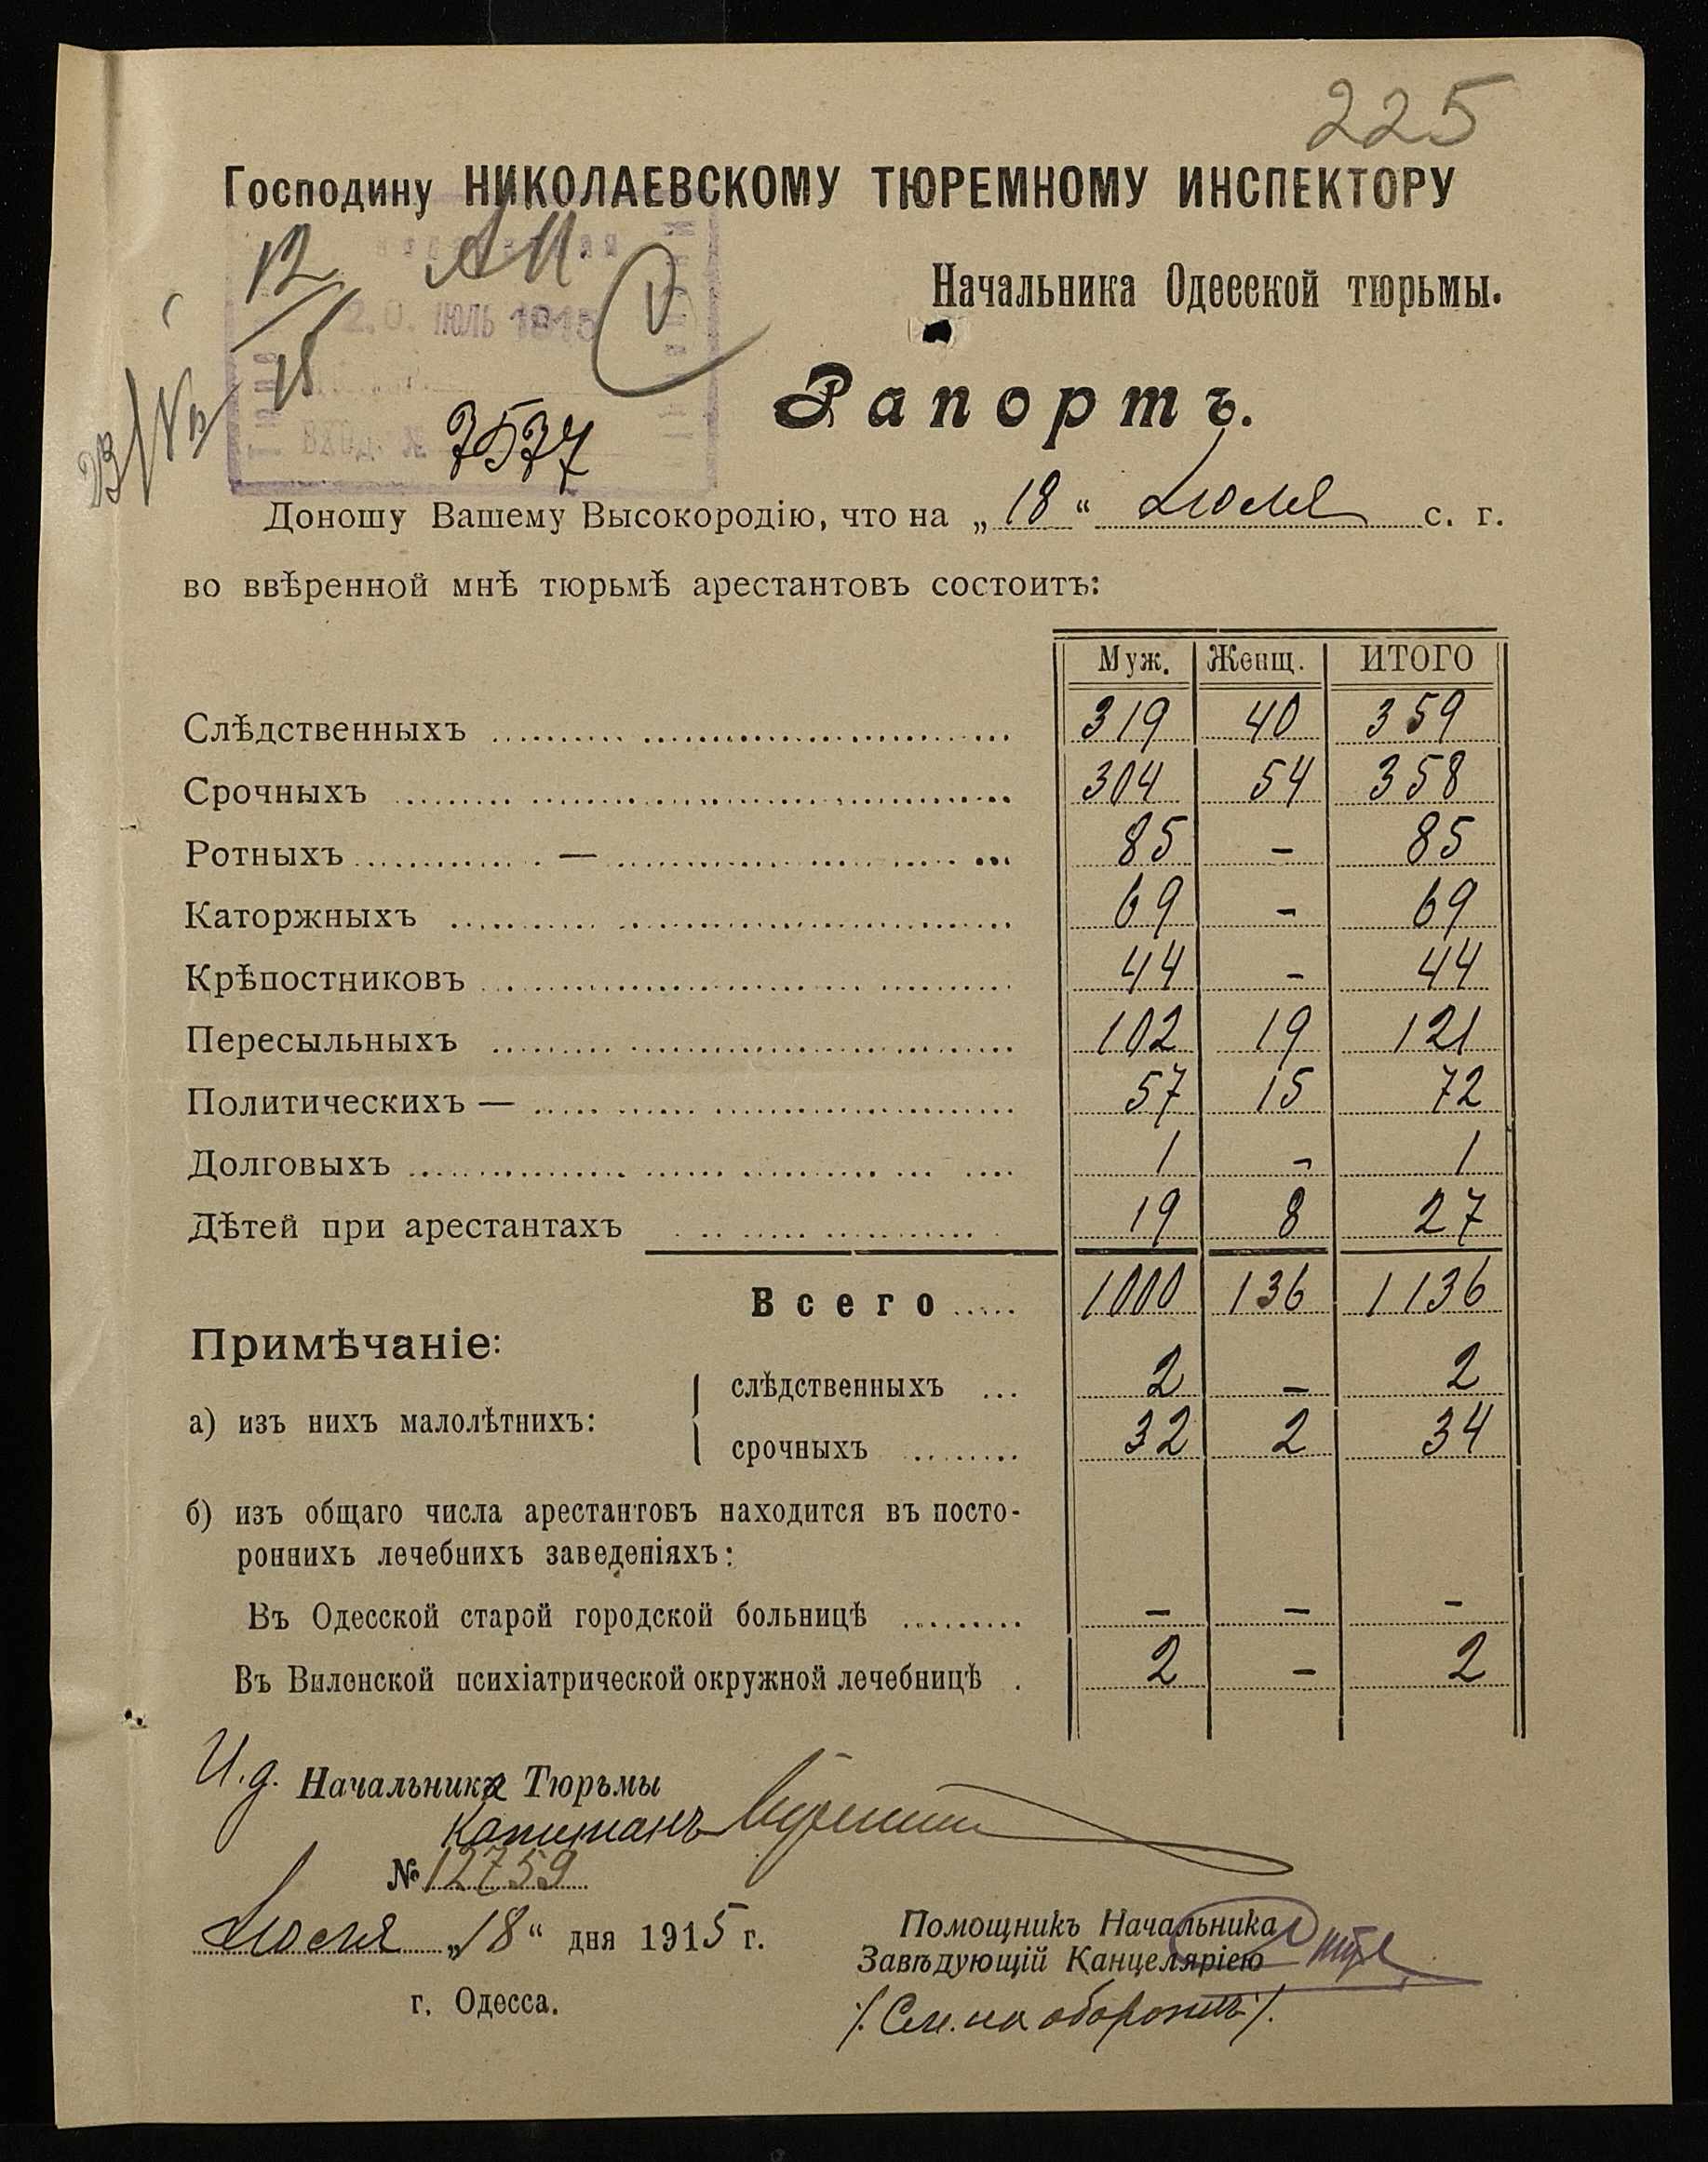 225
Господину НИКОЛАЕВСКОМУ ТЮРЕМНОМУ ИНСПЕКТОРУ
Начальника Одесской тюрьмы.
20. ІЮЛЬ 1915
ВХОД. № 7537
Рапортъ.
Доношу Вашему Высокородію, что на „18“ Іюля с. г.
во ввѣренной мнѣ тюрьмѣ арестантовъ состоитъ:
Муж. Женщ. ИТОГО
Слѣдственныхъ 319 40 359
Срочныхъ 304 54 358
Ротныхъ — 85 - 85
Каторжныхъ 69 - 69
Крѣпостниковъ 44 - 44
Пересыльныхъ 102 19 121
Политическихъ — 57 15 72
Долговыхъ 1 - 1
Дѣтей при арестантахъ 19 8 27
Всего 1000 136 1136
Примѣчаніе:
а) изъ нихъ малолѣтнихъ:
слѣдственныхъ 2 - 2
срочныхъ 32 2 34
б) изъ общаго числа арестантовъ находится въ посто-
роннихъ лечебнихъ заведеніяхъ:
Въ Одесской старой городской больницѣ - - -
Въ Виленской психіатрической окружной лечебницѣ 2 - 2
И.д. Начальника Тюрьмы
Капитанъ
№ 12759
Іюля „18“ дня 1915 г.
г. Одесса.
Помощникъ Начальника
Завѣдующій Канцеляріею
/. См. на оборотѣ ./.